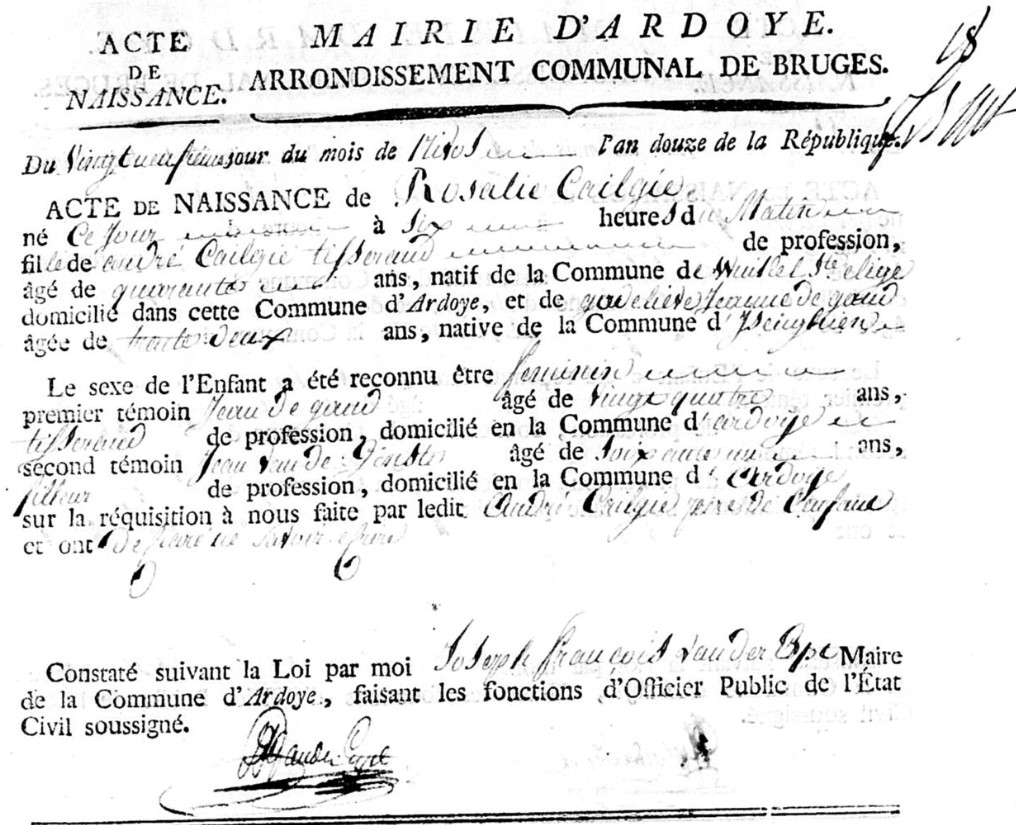 18
ACTE
DE
NAISSANCE.
MAIRIE D'ARDOYE.
ARRONDISSEMENT COMMUNAL DE BRUGES.
Du Vingt jour du mois de Nivose l'an douze de la République.
ACTE DE NAISSANCE de Rosalie Cailgie
né Ce Jour à Six heures du Matin
fille de andré Cailgie tisserand de profession,
âgé de quarante ans, natif de la Commune de Winkel Ste
domicilié dans cette Commune d'Ardoye, et de godelieve Jeanne de gand
âgée de trante deux ans, native de la Commune d'
Le sexe de l'Enfant a été reconnu être feminin
premier témoin Jean de gand âgé de vingt quatre ans,
tisserand de profession, domicilié en la Commune d'ardoye
second témoin Jean van de Ginste âgé de Soixante ans,
filleur de profession, domicilié en la Commune d'Ardoye
sur la réquisition à nous faite par ledit André Cailgie pere de l'enfant
et ont declaré ne savoir ecrire
Constaté suivant la Loi par moi Joseph François van der Maire
de la Commune d'Ardoye, faisant les fonctions d'Officier Public de l'État
Civil soussigné.